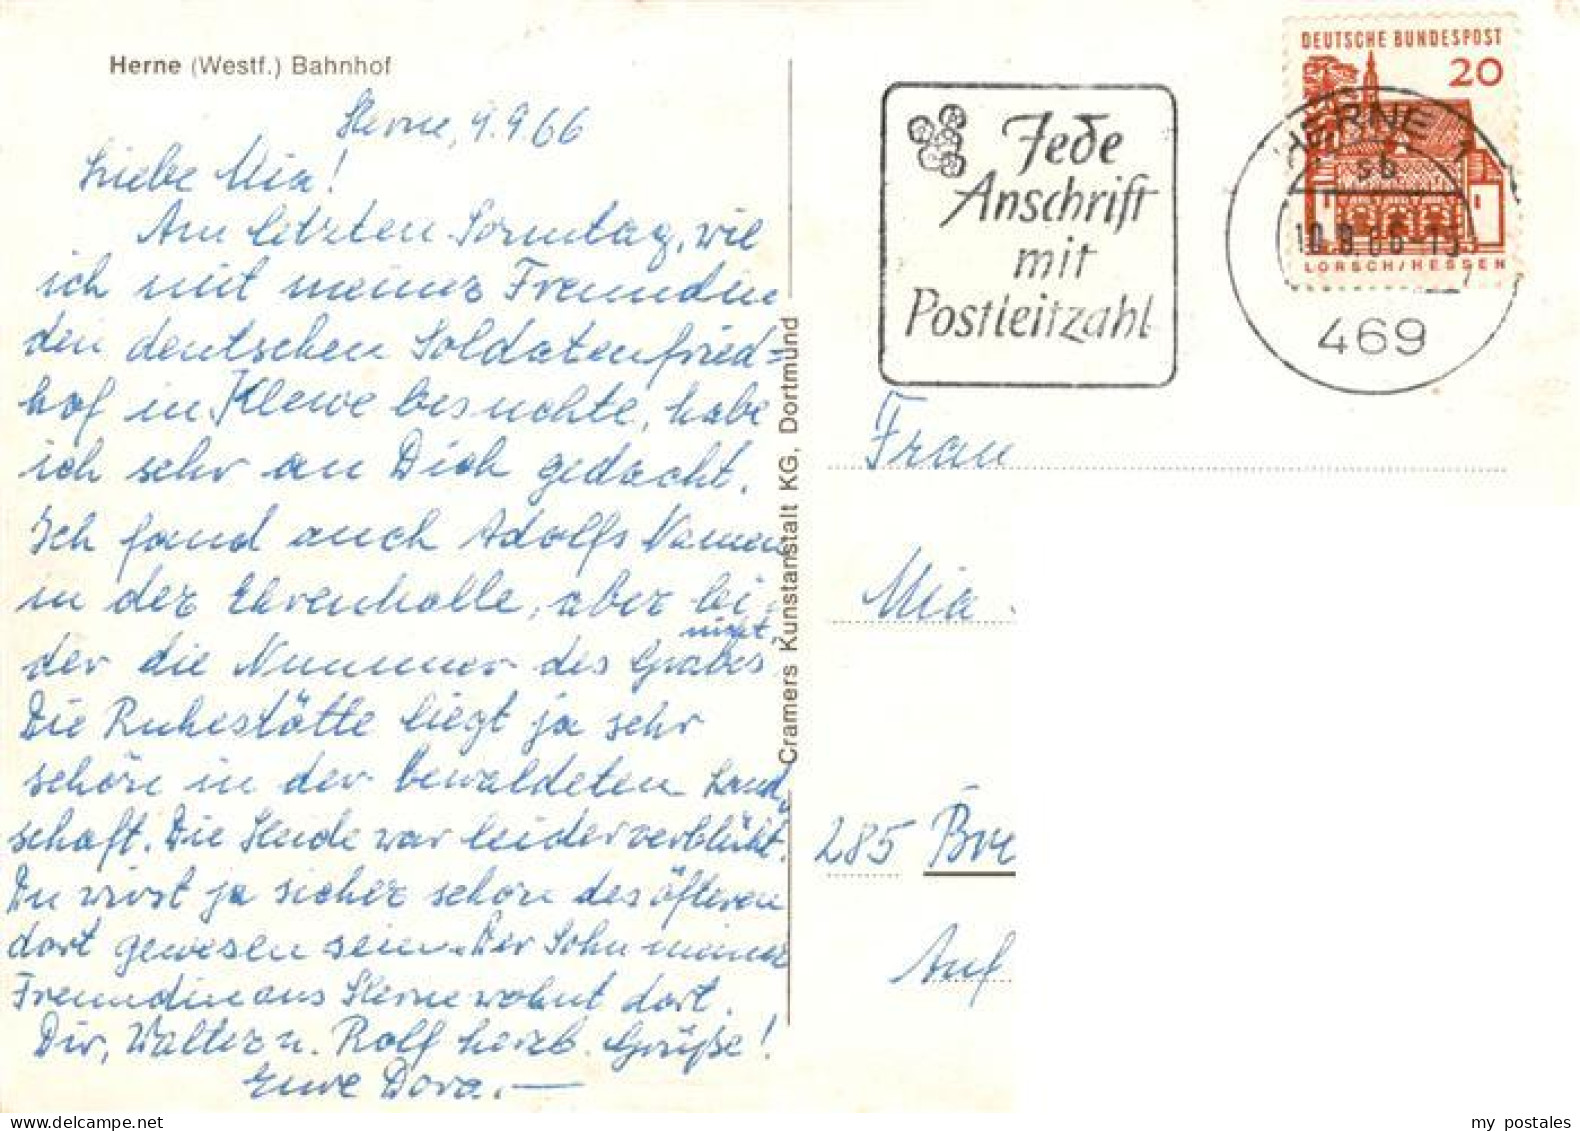 Herne (Westf.) Bahnhof
Herne, 9.9.66
Liebe Mia!
Am letzten Sonntag, wie
ich mit meiner Freundin
den deutschen Soldatenfried=
hof in Klewe besuchte, habe
ich sehr an Dich gedacht.
Ich fand auch Adolfs Namen
in der Ehrenhalle, aber lei-
nicht,
der die Nummer des Grabes
Die Ruhestätte liegt ja sehr
schön in der bewaldeten Land,
schaft. Die Heide war leider verblüht.
Du wirst ja sicher schon des öfteren
dort gewesen sein. Der Sohn meiner
Freundin aus Herne wohnt dort.
Dir, Walter u. Rolf herzl. Grüße!
Eure Dora.—
Cramers Kunstanstalt KG, Dortmund
Jede
Anschrift
mit
Postleitzahl
DEUTSCHE BUNDESPOST
20
LORSCH/HESSEN
HERNE 1
sb
469
Frau
Mia
285 Bre
Auf
my postales